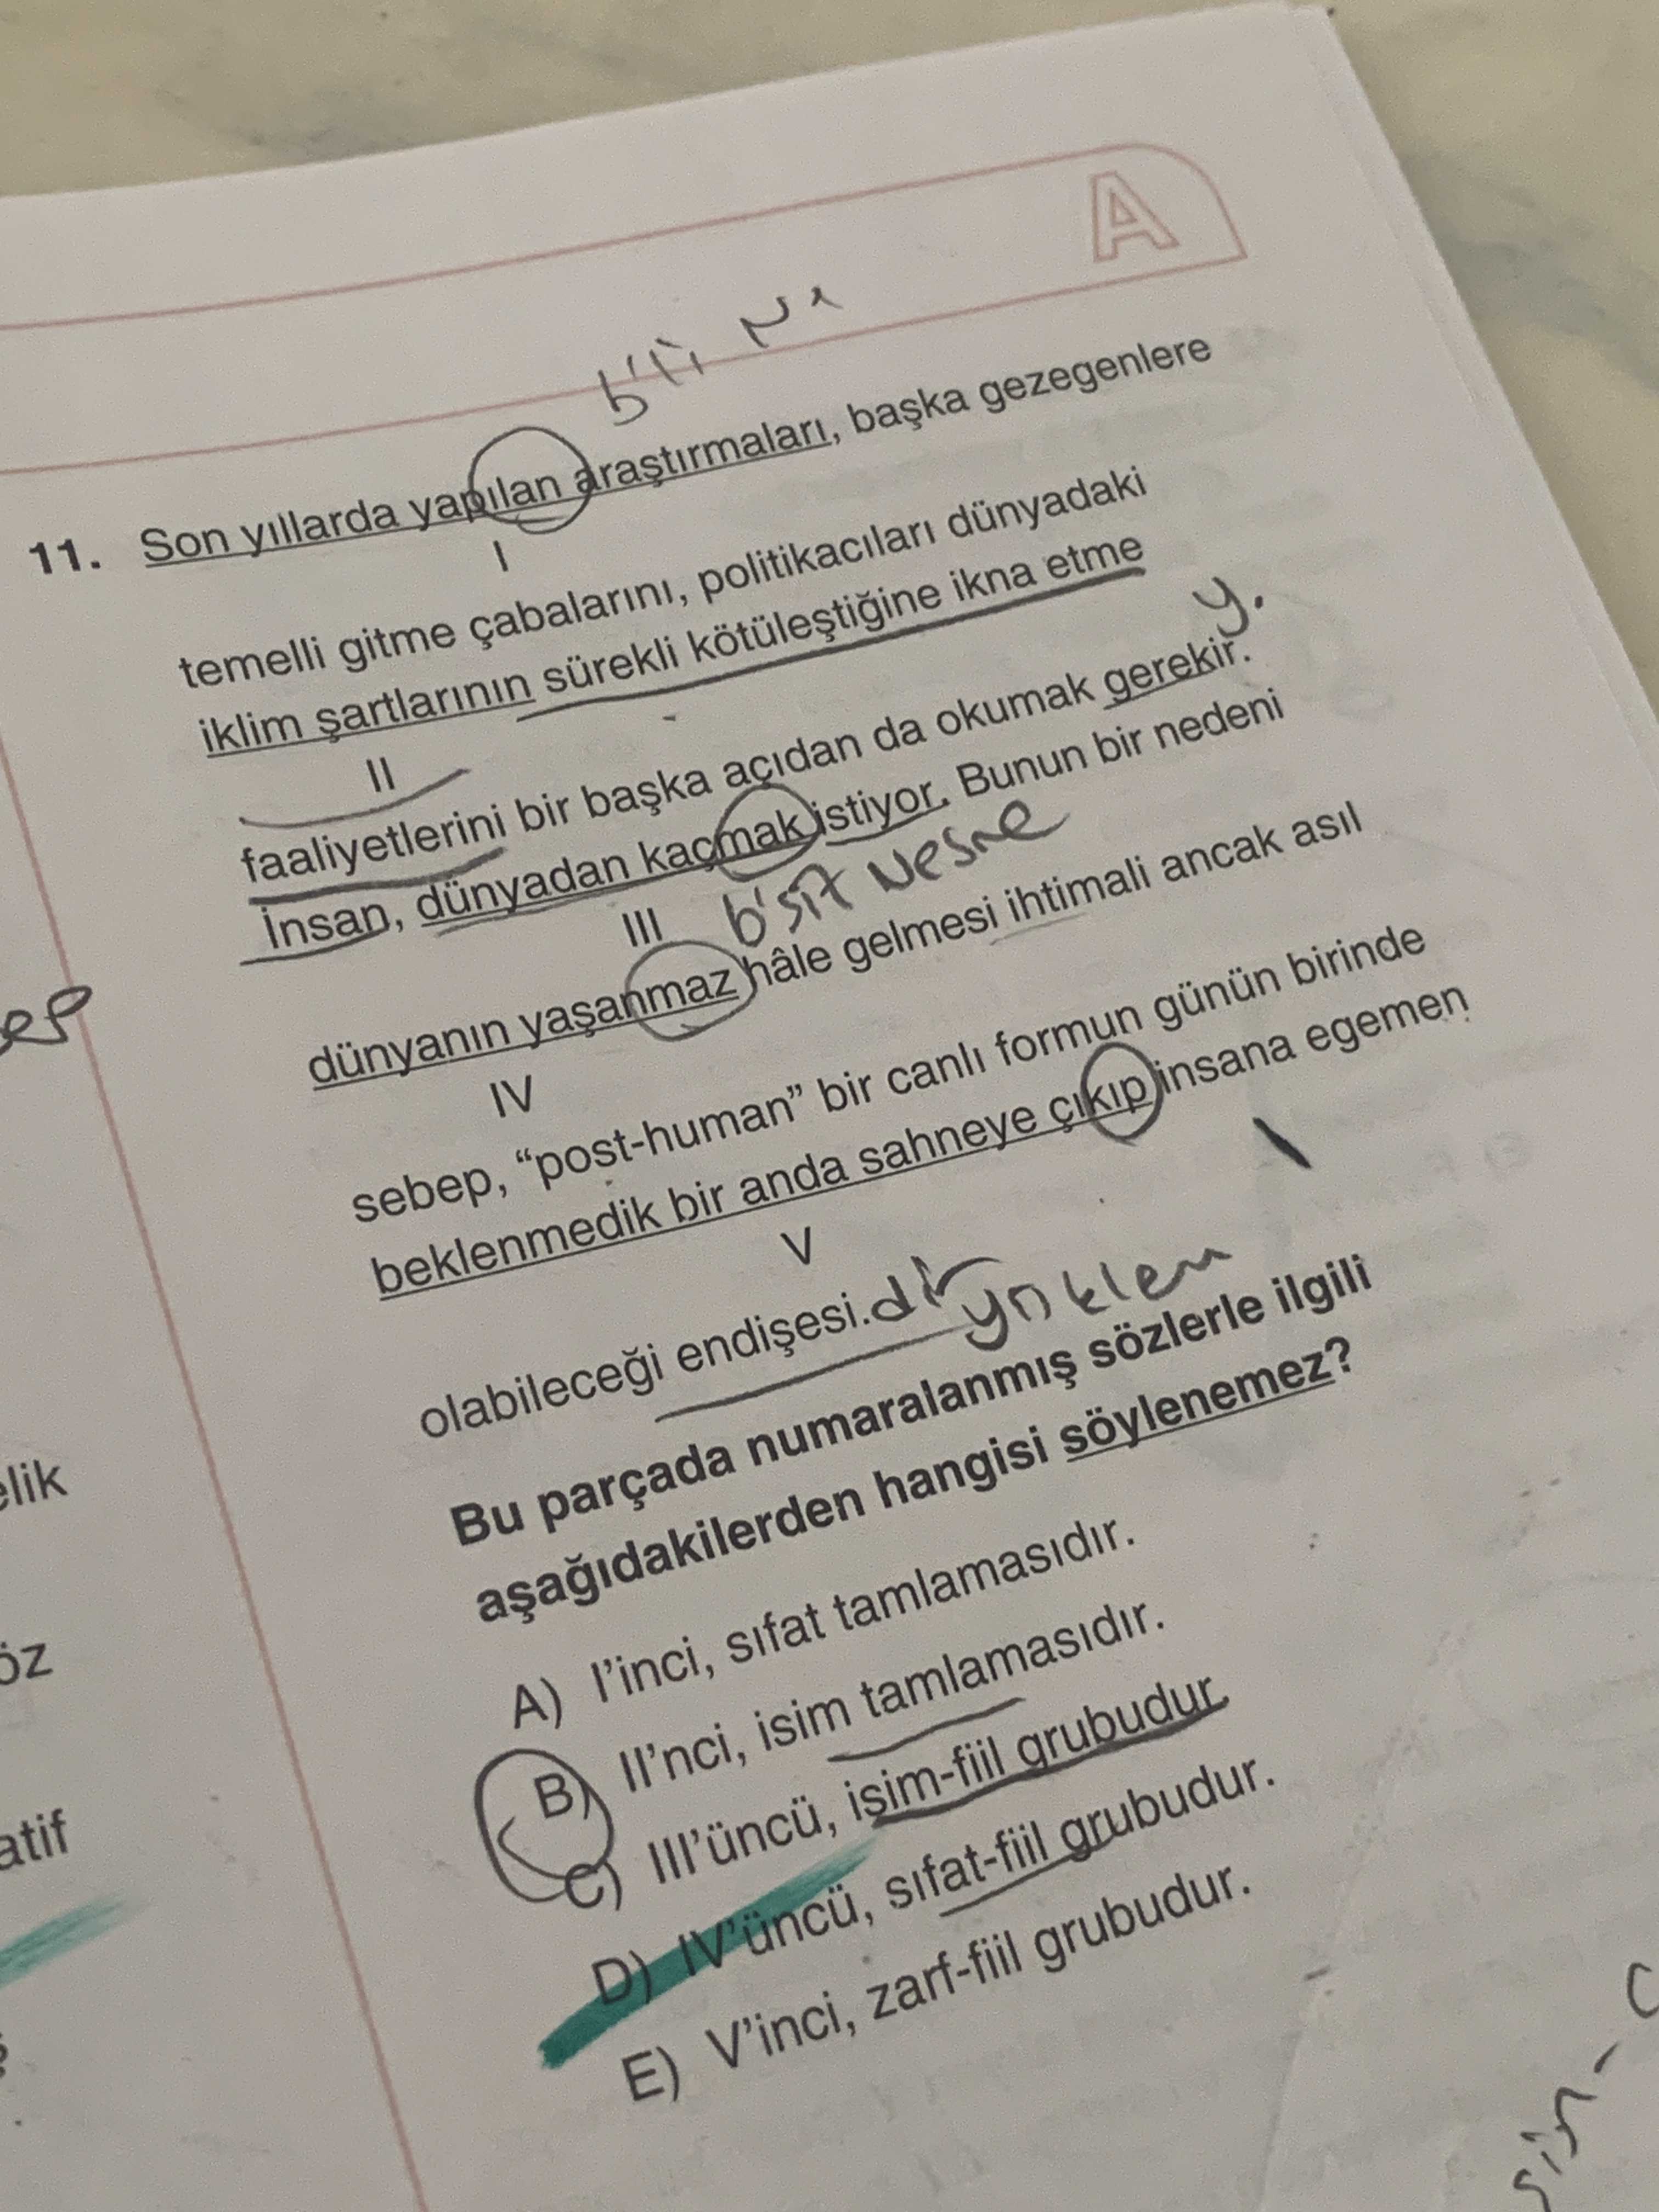 A
b'li N
11. Son yıllarda yapılan araştırmaları, başka gezegenlere
I
temelli gitme çabalarını, politikacıları dünyadaki
iklim şartlarının sürekli kötüleştiğine ikna etme
II
y.
faaliyetlerini bir başka açıdan da okumak gerekir.
İnsan, dünyadan kaçmak istiyor. Bunun bir nedeni
III
b'siz Nesne
dünyanın yaşanmaz hâle gelmesi ihtimali ancak asıl
IV
sebep, “post-human” bir canlı formun günün birinde
beklenmedik bir anda sahneye çıkıp insana egemen
V
olabileceği endişesi.dir yüklem
Bu parçada numaralanmış sözlerle ilgili
aşağıdakilerden hangisi söylenemez?
A) I’inci, sıfat tamlamasıdır.
B) II’nci, isim tamlamasıdır.
C) III’üncü, isim-fiil grubudur.
D) IV’üncü, sıfat-fiil grubudur.
E) V’inci, zarf-fiil grubudur.
elik
öz
atif